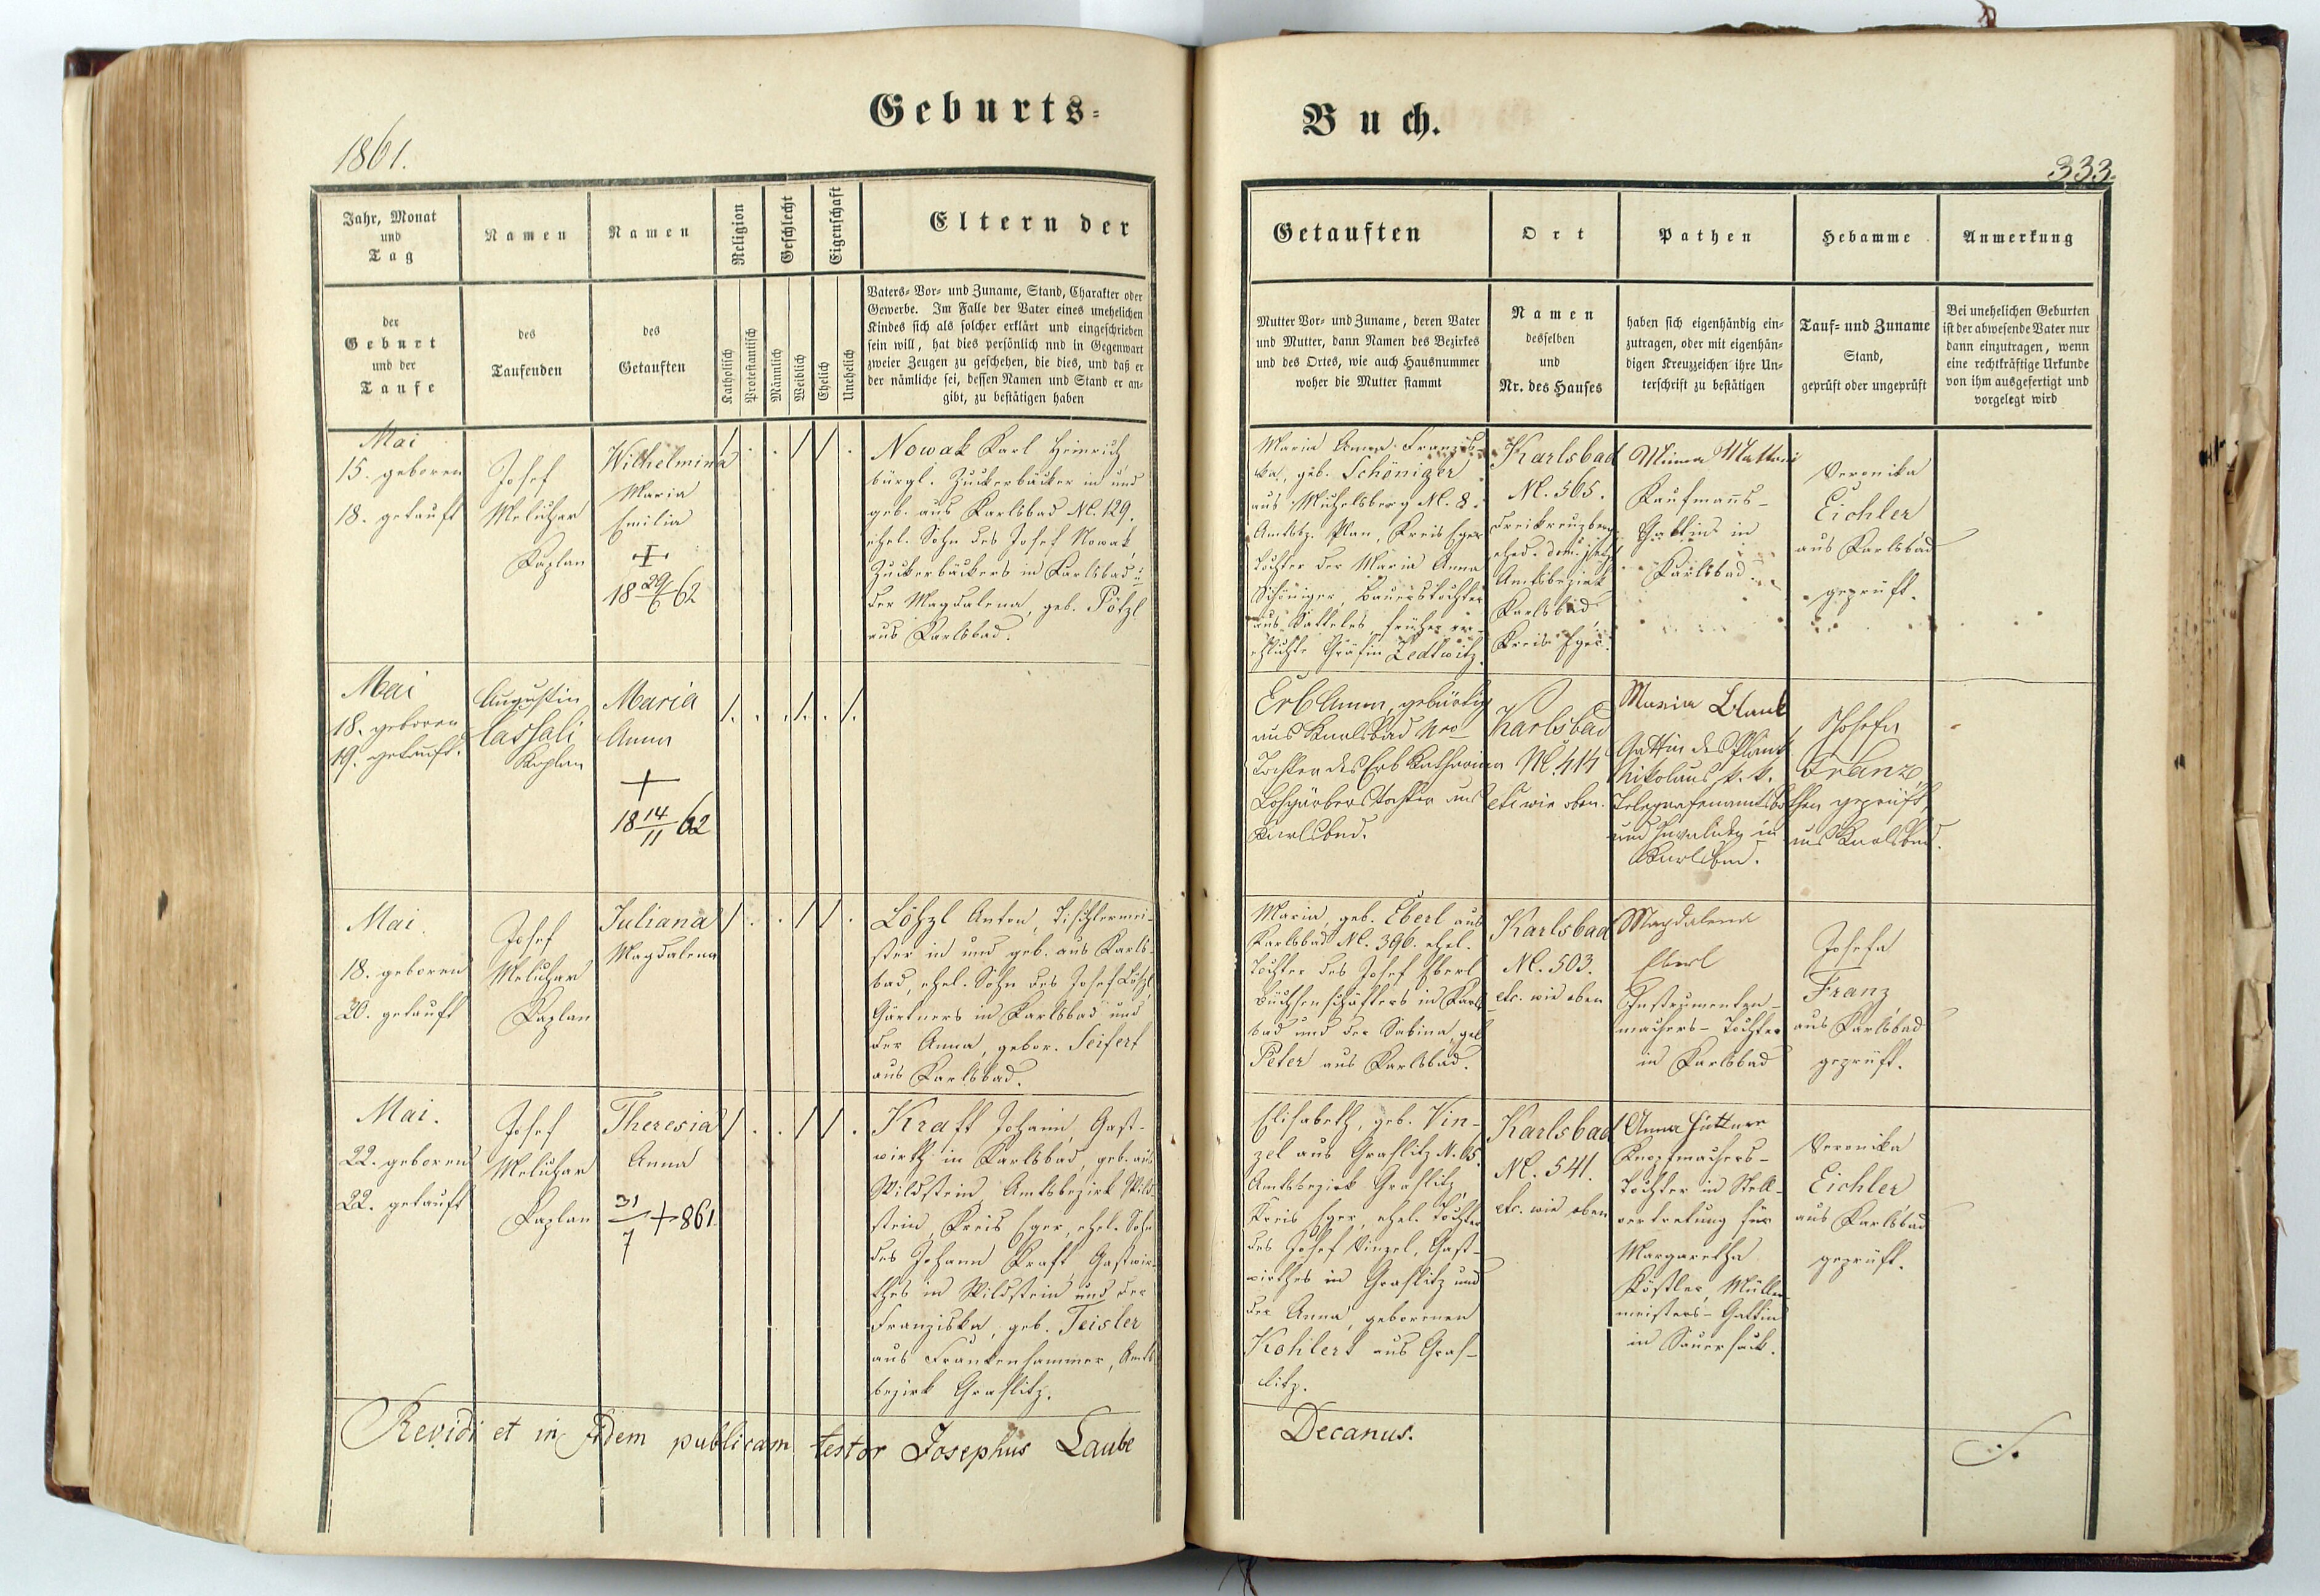 Geburts-
Buch.
1861.
333.
Jahr, Monat
und
Tag
Namen
Namen
Religion
Geschlecht
Eigenschaft
Eltern der
Getauften
Ort
Pathen
Hebamme
Anmerkung
der
Geburt
und der
Taufe
des
Taufenden
des
Getauften
Katholisch
Protestantisch
Männlich
Weiblich
Ehelich
Unehelich
Vaters- Vor- und Zuname, Stand, Charakter oder
Gewerbe. Im Falle der Vater eines unehelichen
Kindes sich als solcher erklärt und eingeschrieben
sein will, hat dies persönlich nnd in Gegenwart
zweier Zeugen zu geschehen, die dies, und daß er
der nämliche sei, dessen Namen und Stand er an-
gibt, zu bestätigen haben
Mutter Vor- und Zuname, deren Vater
und Mutter, dann Namen des Bezirkes
und des Ortes, wie auch Hausnummer
woher die Mutter stammt
Namen
desselben
und
Nr. des Hauses
haben sich eigenhändig ein-
zutragen, oder mit eigenhän-
digen Kreuzzeichen ihre Un-
terschrift zu bestätigen
Tauf- und Zuname
Stand,
geprüft oder ungeprüft
Bei unehelichen Geburten
ist der abwesende Vater nur
dann einzutragen, wenn
eine rechtkräftige Urkunde
von ihm ausgefertigt und
vorgelegt wird
Mai
15. geboren
18. getauft
Josef
Meluzar
Kaplan
Wilhelmina
Maria
Emilia
+
18 29/6 62
Nowak Karl Heinrich
bürgl. Zuckerbäcker in und
geb. aus Karlsbad N. 129.
ehel. Sohn des Josef Nowak,
Zuckerbäckers in Karlsbad u
der Magdalena, geb. Pötzl
aus Karlsbad.
Maria Anna Franzis-
ka, geb. Schöniger
aus Michelsberg N. 8.
Amtsbz. Plan, Kreis Eger
Tochter der Maria Anna
Schöniger, Bauerstochter
aus früher
Gräfin Zedtwitz.
Karlsbad
N. 565.
Dreikreuzberg
Amtsbezirk
Karlsbad
Kreis Eger.
Minna Mattoni
Kaufmanns-
Gattin in
Karlsbad
Veronika
Eichler
aus Karlsbad
geprüft.
Mai
18. geboren
19. getauft.
Augustin
Cassali
Kaplan
Maria
Anna
+
18 14/11 62
Erl Anna, gebürtig
aus Karlsbad Nro
Tochter des Erb Katharina
Lohgärbers Tochter aus
Karlsbad.
Karlsbad
N. 414
etc wie oben.
Maria Blank
Gattin des Plank
Nikolaus k. k.
Telegrafenamtsbothen
und Invaliden in
Karlsbad.
Josefa
Franz,
geprüft,
aus Karlsbad.
Mai
18. geboren
20. getauft
Josef
Meluzar
Kaplan
Juliana
Magdalena
Lößl Anton, Tischlermei-
ster in und geb. aus Karls-
bad, ehel. Sohn des Josef Lößl
Gärtners in Karlsbad und
der Anna, gebor. Seifert
aus Karlsbad.
Maria, geb. Eberl aus
Karlsbad N. 396. ehel.
Tochter des Josef Eberl
Büchsenschäfters in Karls
bad und der Sabina, geb
Peter aus Karlsbad.
Karlsbad
N. 503.
etc. wie oben
Magdalena
Eberl
Instrumenten-
machers-Tochter
in Karlsbad
Josefa
Franz,
aus Karlsbad
geprüft.
Mai.
22. geboren
22. getauft
Josef
Meluzar
Kaplan
Theresia
Anna
31/7 + 861
Kraft Johann, Gast-
wirth in Karlsbad, geb. aus
Wildstein Amtsbezirk Wild-
stein, Kreis Eger, ehel. Sohn
des Johann Kraft Gastwir-
thes in Wildstein und der
Franziska, geb. Teisler
aus Frankenhammer, Amts-
bezirk Graslitz.
Elisabeth, geb. Vin-
zel aus Graslitz N. 65.
Amtsbezirk Graslitz,
Kreis Eger, ehel. Tochter
des Josef Vinzel, Gast-
wirthes in Graslitz und
der Anna, gebornen
Kohlert aus Gras-
litz.
Karlsbad
N. 541.
etc. wie oben
Anna Hüttner
Knopfmachers-
Tochter in Stell-
vertretung für
Margaretha
Köstler, Müller-
meisters-Gattin
in Sauersack.
Veronika
Eichler,
aus Karlsbad
geprüft.
Revidi et in fidem publicam testor Josephus Laube
Decanus.